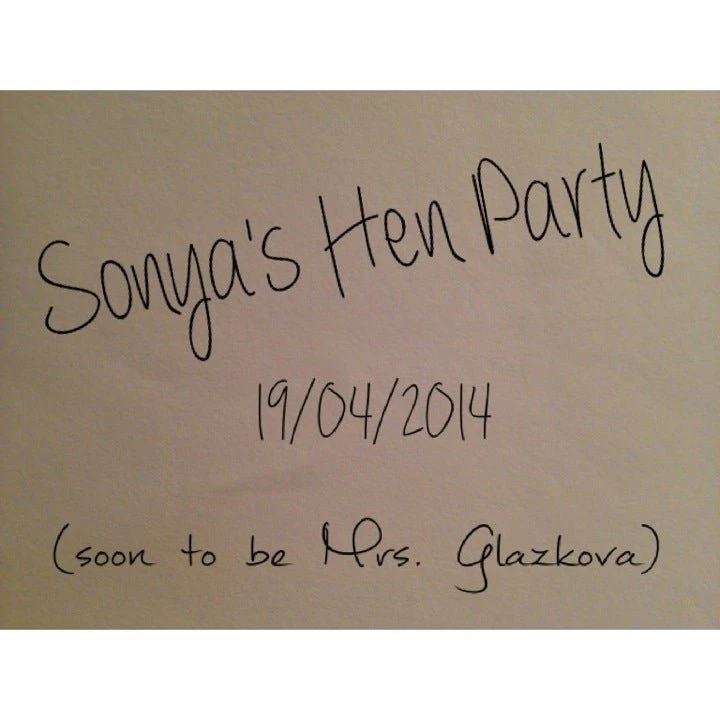 Sonya's Hen Party
19/04/2014
(soon to be Mrs. Glazkova)